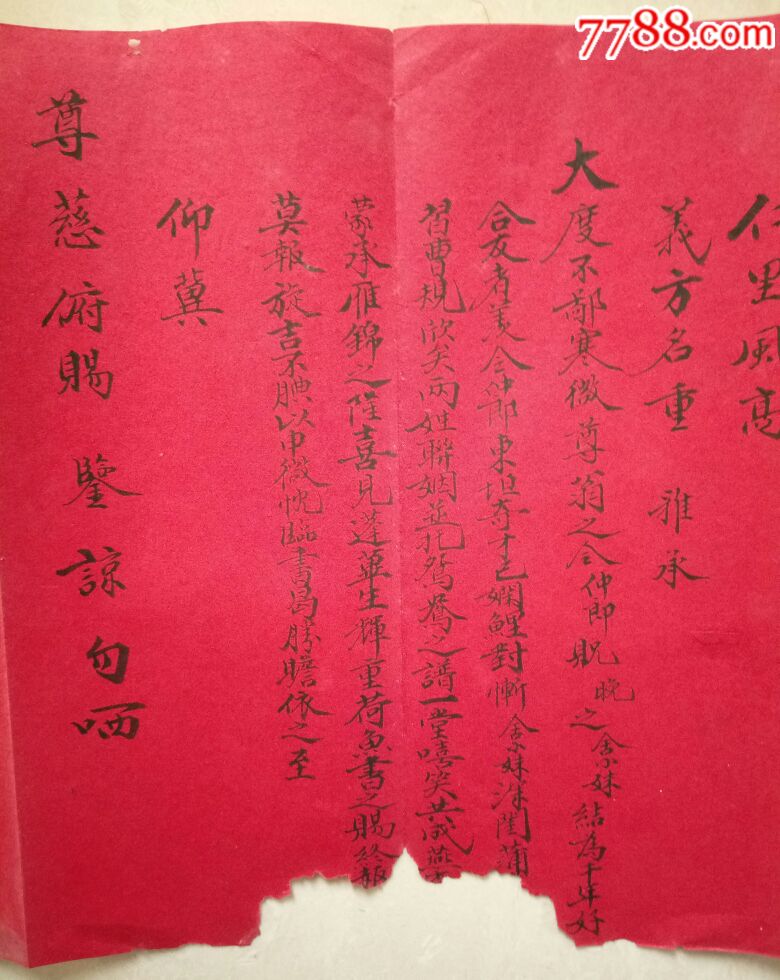 7788.com
仁里風高
義方名重 雅承
大度不鄙寒微尊翁之令仲郎貺晚之舍妹結為千年好
合友者羨令仲郎東坦奇才已嫻鯉對慚舍妹洙閨蒲
習曹規欣矣両姓聯姻並托鴛鴦之譜一堂嘻笑共成燕
蒙承雁錦之隆喜見蓬蓽生輝重荷魚書之賜終報
莫報旋吉不腆以申微忱臨書曷勝瞻依之至
仰冀
尊慈俯賜鑒諒勻哂